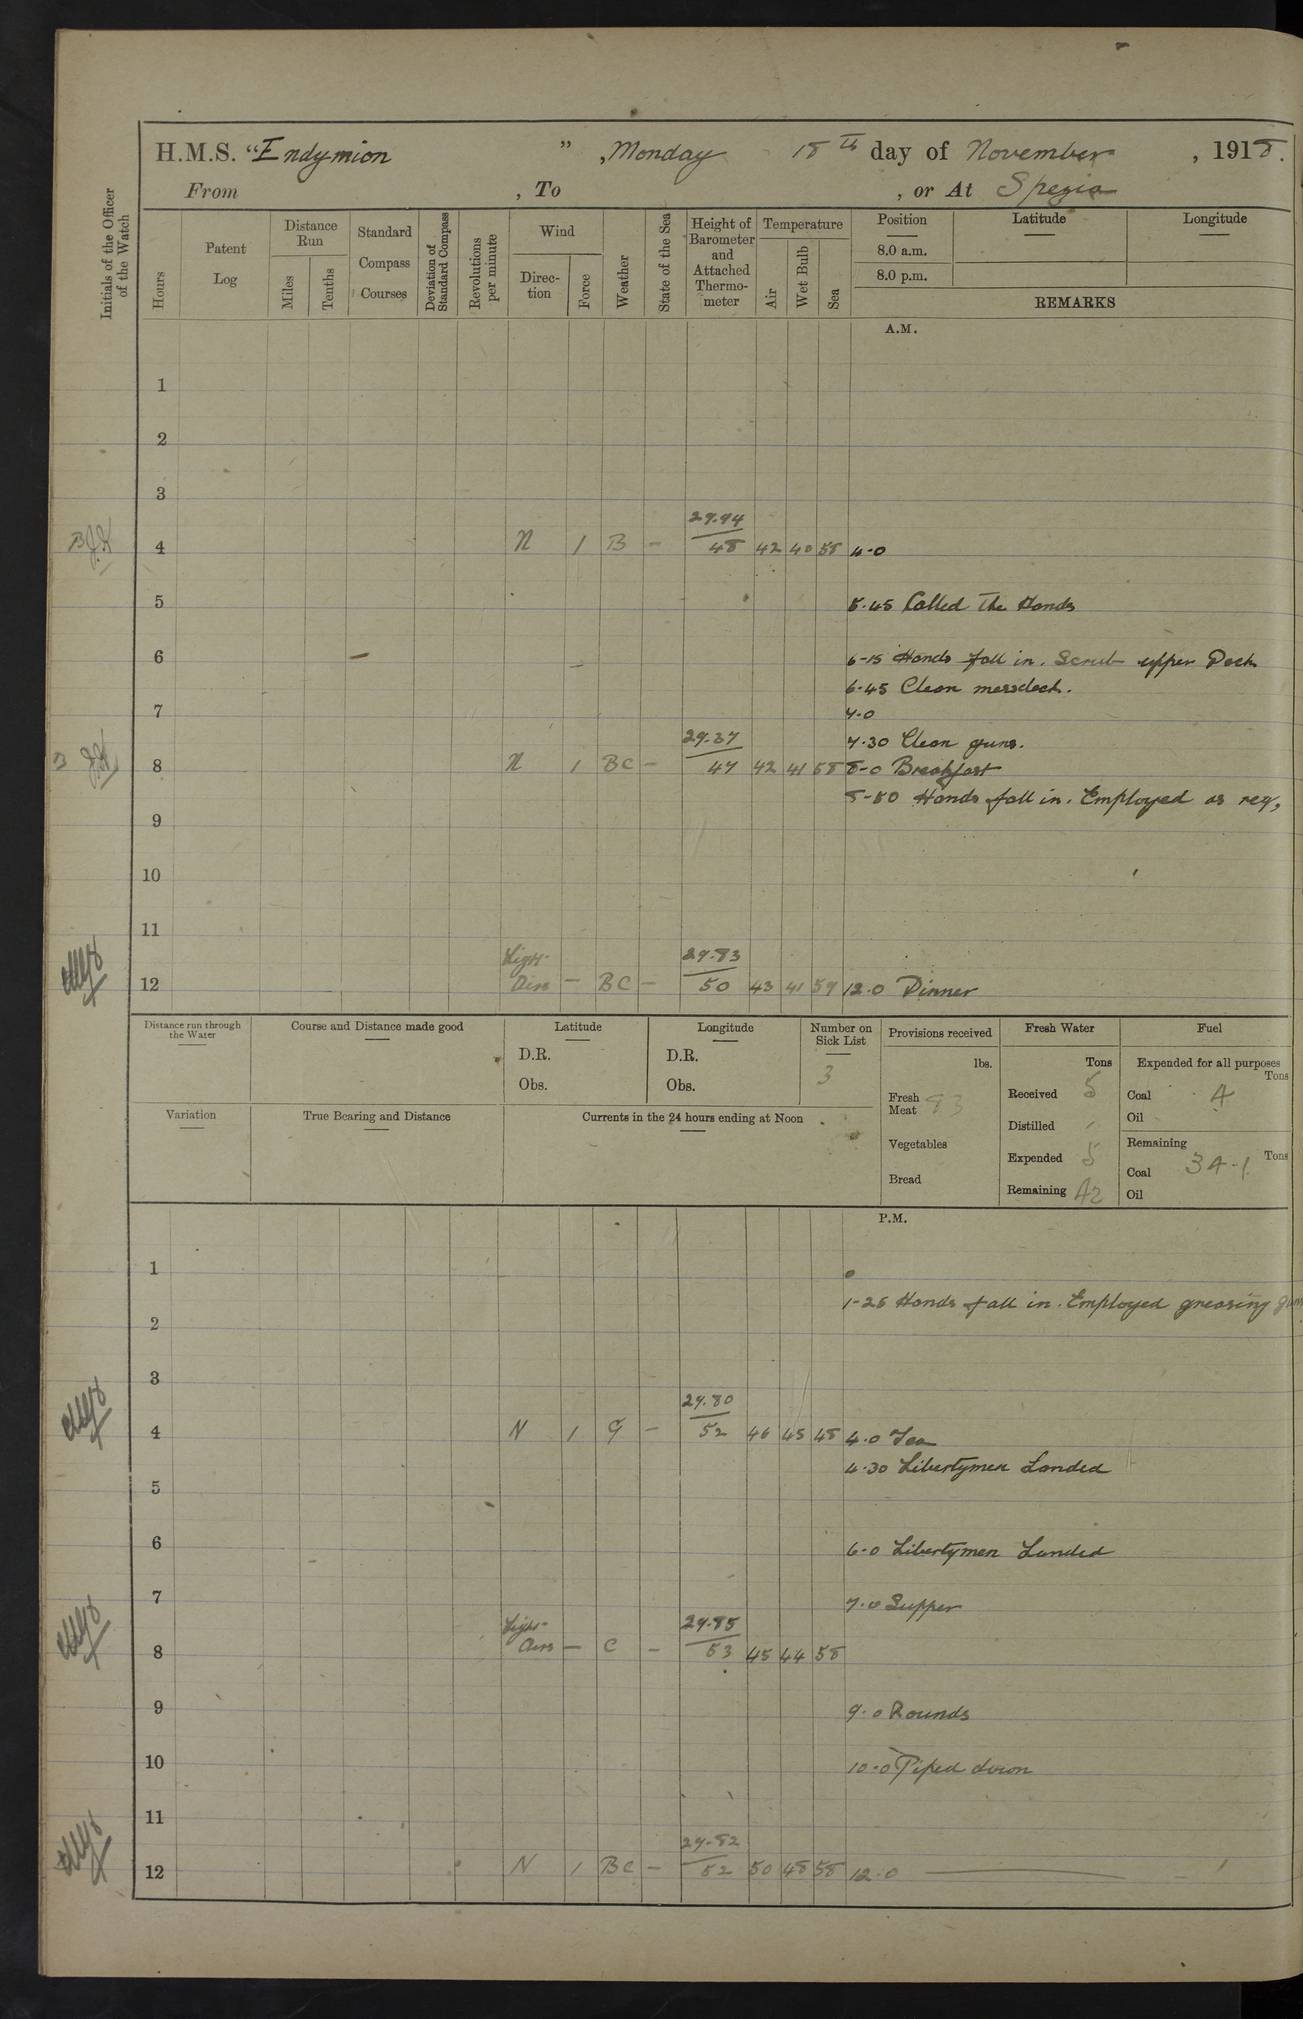 H.M.S. "Endymion", Monday 18th day of November, 1918.
From , To , or At Spezia
Initials of the Officer of the Watch
Hours
Patent Log
Distance Run
Miles
Tenths
Standard Compass Courses
Deviation of Standard Compass
Revolutions per minute
Wind
Direc-tion
Force
Weather
State of the Sea
Height of Barometer and Attached Thermo-meter
Temperature
Air
Wet Bulb
Sea
Position
Latitude
Longitude
8.0 a.m.
8.0 p.m.
REMARKS
A.M.
1
2
3
29.94
4 N 1 B - 48 42 40 58 4-0
5 5.45 Called the Hands
6 6-15 Hands fall in. Scrub upper Deck
6-45 Clean messdeck.
7 7.0
29.87
7.30 Clean guns.
8 N 1 BC - 47 42 41 58 8-0 Breakfast
8-50 Hands fall in. Employed as req,
9
10
11
Light 29.83
12 Airs - BC - 50 43 41 59 12.0 Dinner
Distance run through the Water
Course and Distance made good
Latitude
D.R.
Obs.
Longitude
D.R.
Obs.
Number on Sick List
3
Provisions received
lbs.
Fresh Meat 93
Vegetables
Bread
Fresh Water
Tons
Received 5
Distilled
Expended 5
Remaining 42
Fuel
Expended for all purposes
Tons
Coal 4
Oil
Remaining
Tons
Coal 34-1
Oil
Variation
True Bearing and Distance
Currents in the 24 hours ending at Noon
P.M.
1
1-25 Hands fall in. Employed greasing
2
3
29.80
4 N 1 G - 52 46 45 48 4.0 Tea
4.30 Libertymen Landed
5
6 6.0 Libertymen Landed
7 7.0 Supper
Light 29.85
8 Airs - C - 53 45 44 58
9 9.0 Rounds
10 10.0 Piped down
11
29.82
12 N 1 BC - 52 50 48 58 12.0